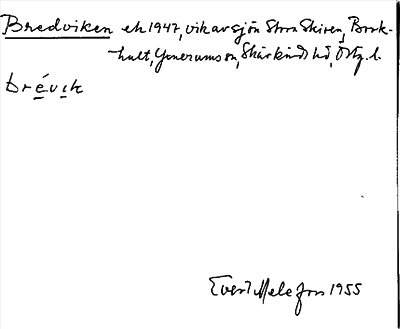 Bredviken ek 1947, vik av sjön Stora Skiren, Bork-
hult, Yxnerums sn, Skärkinds hd, Östg. l.
brévik
Evert Melefors 1955